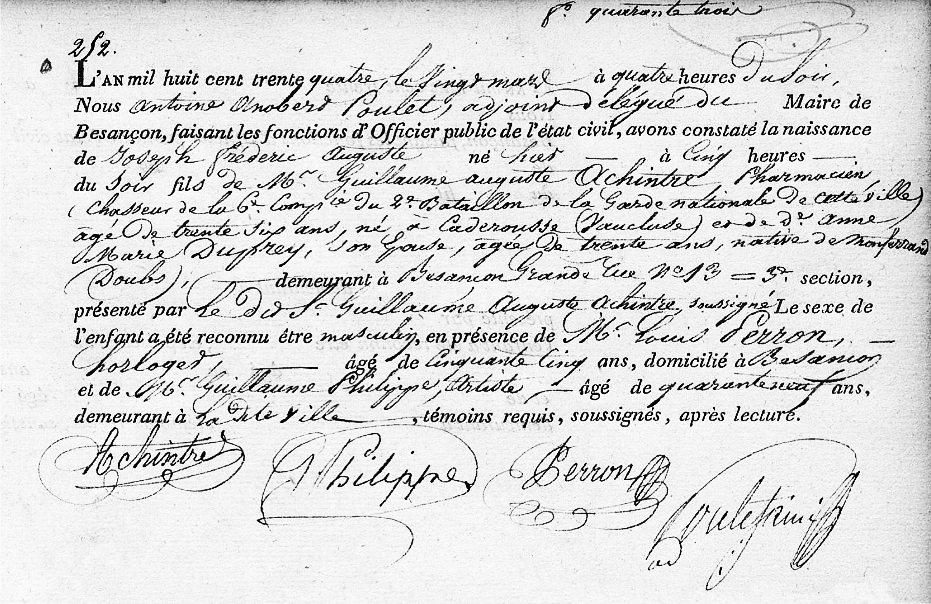 fo. quarante trois
252.
L'AN mil huit cent trente quatre, le vingt mars à quatre heures du soir,
Nous Antoine Anobert Poulet, adjoint délégué du Maire de
Besançon, faisant les fonctions d'Officier public de l'état civil, avons constaté la naissance
de Joseph Fréderic Auguste né hier à Cinq heures
du soir fils de Mr. Guillaume auguste Achintre Pharmacien
(Chasseur de la 6e. Compie du 2e. Bataillon de la Garde nationale de cette ville)
agé de trente six ans, né à Caderousse (Vaucluse) et de de. anne
Marie Duprey, son Epouse, agée de trente ans, native de Monferrand
(Doubs), demeurant à Besancon Grande rue No. 13 = 3e. section,
présenté par Le dit Sr. Guillaume Auguste Achintre, soussigné Le sexe de
l'enfant a été reconnu être masculin, en présence de Mr. Louis Perron,
horloger âgé de Cinquante Cinq ans, domicilié à Besancon
et de Mr. Guillaume Philippe, Artiste, âgé de quarante neuf ans,
demeurant à La dite Ville, témoins requis, soussignés, après lecture.
Achintre G Philippe Perron